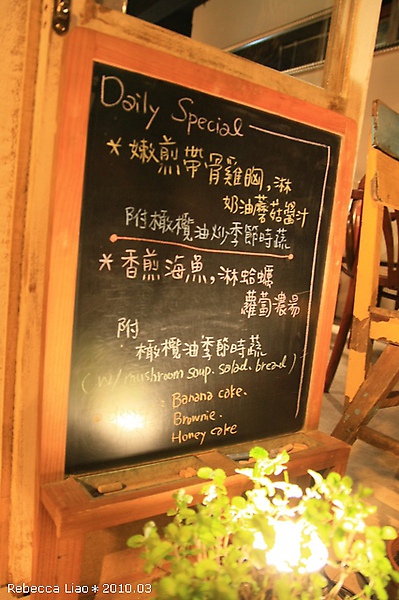 Daily Special
* 嫩煎帶骨雞胸,淋
奶油蘑菇醬汁
附橄欖油炒季節時蔬
* 香煎海魚,淋蛤蠣
蘿蔔濃湯
附
橄欖油季節時蔬
(w/mushroom soup. salad. bread)
: Banana cake.
Brownie.
Honey cake
Rebecca Liao * 2010.03